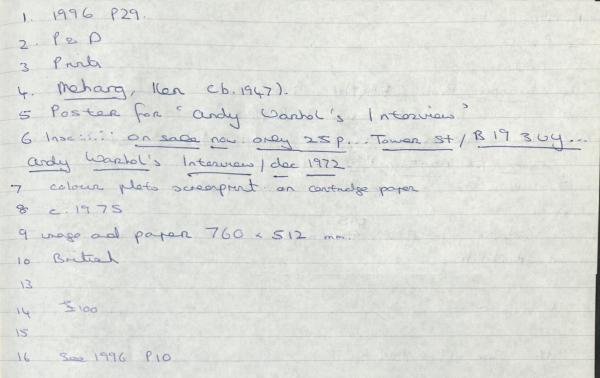 1. 1996 P29.
2. P & D
3 Prints
4. Meharg, Ken (b.1947).
5 Poster for 'Andy Warhol's Interview'
6 Insc:...: on sale now only 25p... Tower St / B19 3UY...
Andy Warhol's Interview / dec 1972.
7 colour photo screenprint on cartridge paper
8 c.1975
9 image and paper 760 x 512 mm.
10 British
13
14 £100
15
16 See 1996 P10